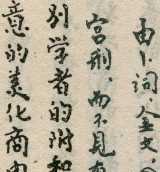 由卜词、金文、
宫刑，而不见有
别学者的附和
意的美化商内